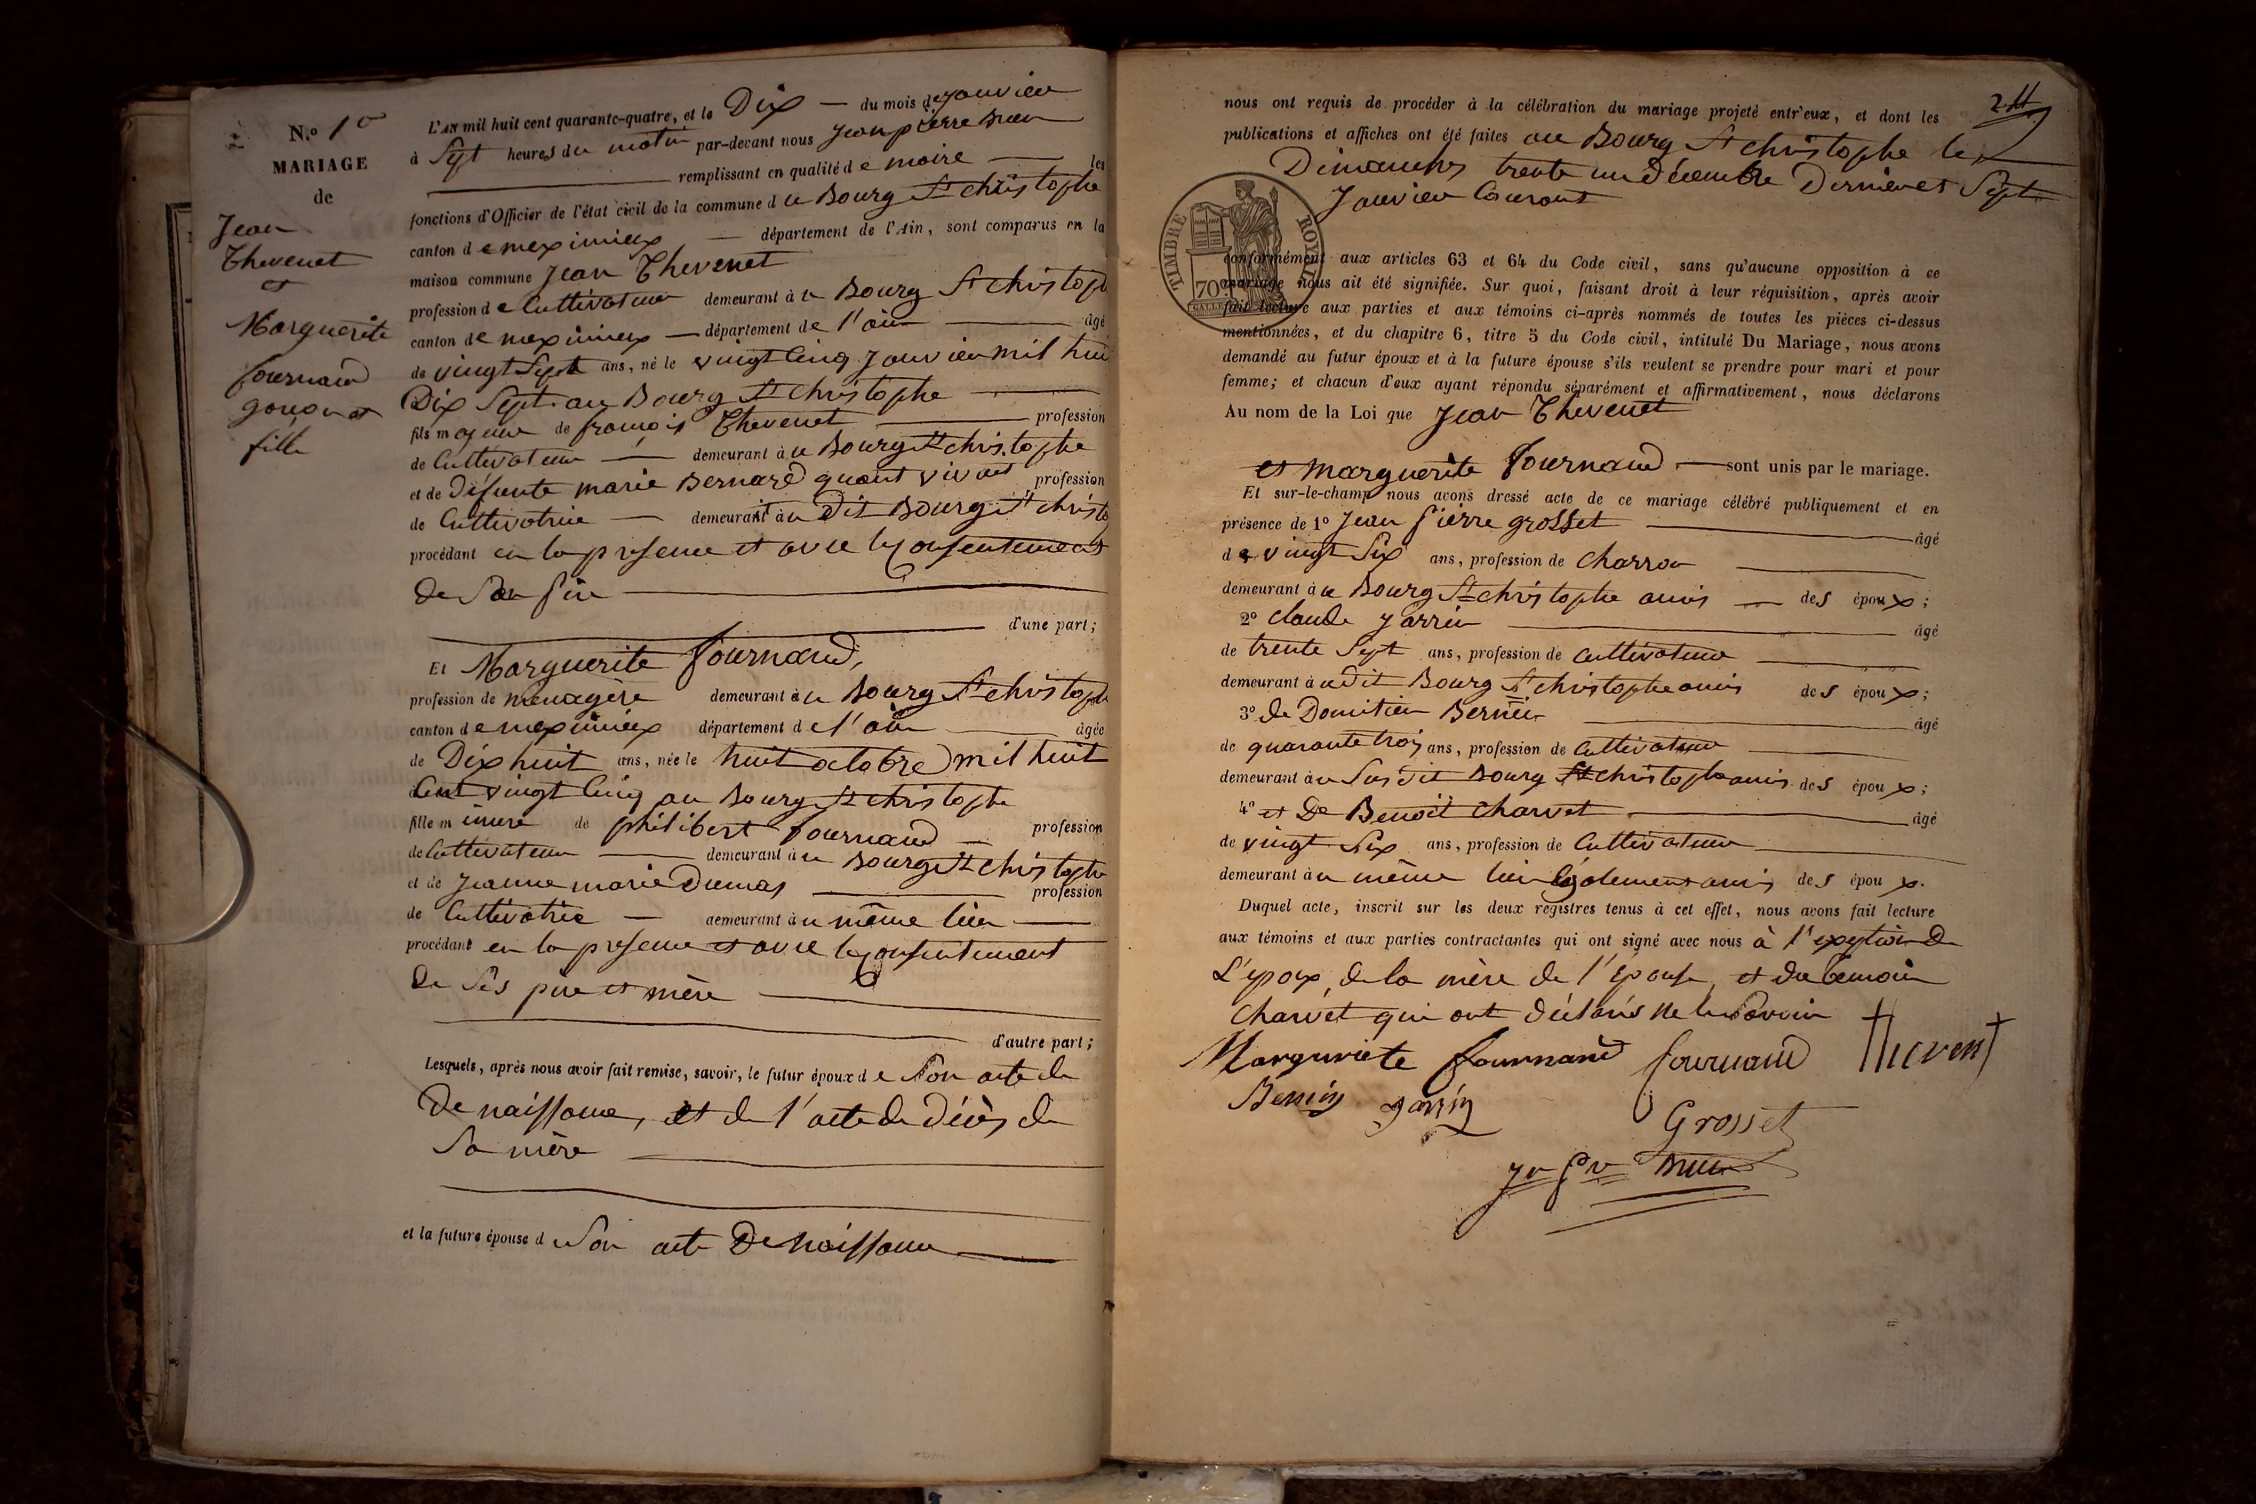 N.o 1er
MARIAGE
de
Jean
Thevenet
et
Marguerite
fournand
garçon et
fille
L'AN mil huit cent quarante-quatre, et le Dix du mois de janvier
à Sept heures du matin par-devant nous jean pierre
remplissant en qualité de maire les
fonctions d'Officier de l'état civil de la commune du Bourg St christophe
canton de meximieux département de l'Ain, sont comparus en la
maison commune Jean Thevenet
profession de Cultivateur demeurant au Bourg St christoph
canton de meximieux département de l'ain âgé
de vingt Sept ans, né le vingt Cinq janvier mil hui
Dix Sept au Bourg St christophe
fils majeur de françois Thevenet profession
de Cultivateur demeurant au Bourg St christophe
et de défunte marie Bernard quant vivait profession
de Cultivatrice demeurant au dit Bourg St christo
procédant en la presence et avec le consentement
de Son père
d'une part;
Et Marguerite fournand,
profession de menagère demeurant au Bourg St christoph
canton de meximieux département de l'ain âgée
de Dix huit ans, née le huit octobre mil huit
Cent vingt Cinq au Bourg St christophe
fille mineure de philibert fournand profession
de Cultivateur demeurant au Bourg St christophe
et de jeanne marie Dumas profession
de Cultivatrice demeurant au même lieu
procédant en la presence et avec le consentement
de Ses père et mère
d'autre part;
Lesquels, après nous avoir fait remise, savoir, le futur époux de Son acte de
De naissance, et de l'acte de décès de
Sa mère
et la future épouse de Son acte De naissance
nous ont requis de procéder à la célébration du mariage projeté entr'eux, et dont les
publications et affiches ont été faites au Bourg St christophe le
Dimanches trente un décembre Dernier et Sept
Janvier Courant
TIMBRE ROYAL
70c
conformément aux articles 63 et 64 du Code civil, sans qu'aucune opposition à ce
mariage nous ait été signifiée. Sur quoi, faisant droit à leur réquisition, après avoir
fait lecture aux parties et aux témoins ci-après nommés de toutes les pièces ci-dessus
mentionnées, et du chapitre 6, titre 5 du Code civil, intitulé Du Mariage, nous avons
demandé au futur époux et à la future épouse s'ils veulent se prendre pour mari et pour
femme; et chacun d'eux ayant répondu séparément et affirmativement, nous déclarons
Au nom de la Loi que Jean Thevenet
et marguerite fournand sont unis par le mariage.
Et sur-le-champ nous avons dressé acte de ce mariage célébré publiquement et en
présence de 1o Jean pierre grosset âgé
de vingt Six ans, profession de charron
demeurant au Bourg St christophe amis des époux;
2o claude jarrin âgé
de trente Sept ans, profession de Cultivateur
demeurant au dit Bourg St christophe amis des époux;
3o de Domitien Bernin âgé
de quarante trois ans, profession de Cultivateur
demeurant au Susdit Bourg St christophe amis des époux;
4o et De Benoit Charvet âgé
de vingt Six ans, profession de Cultivateur
demeurant au même lieu Également amis des époux.
Duquel acte, inscrit sur les deux registres tenus à cet effet, nous avons fait lecture
aux témoins et aux parties contractantes qui ont signé avec nous à l'exception De
L'époux, de la mère de l'épouse, et du temoin
Charvet qui ont déclarés ne le Savoir
Margueriete fournand fournand thevent
Bernin jarrin
Grosset